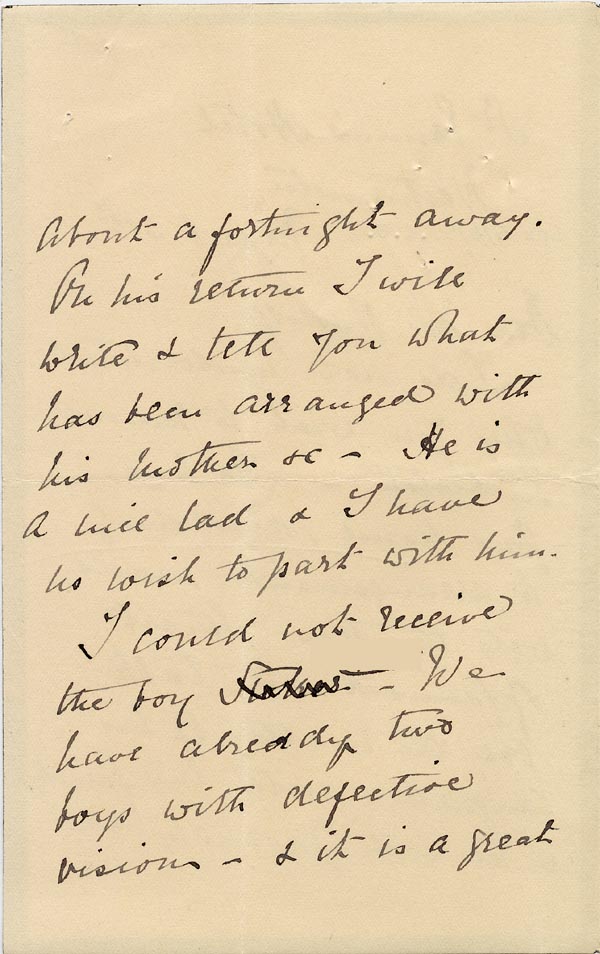 about a fortnight away.
On his return I will
write & tell you what
has been arranged with
his mother &c - He is
a nice lad & I have
no wish to part with him.
I could not receive
the boy - We
have already two
boys with defective
vision - & it is a great